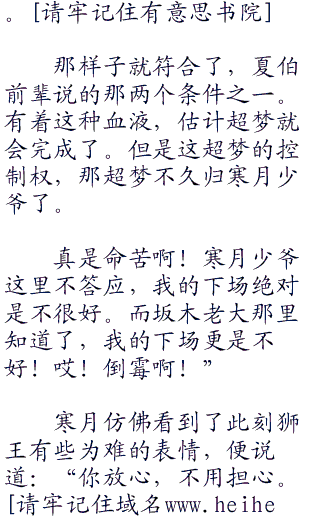 。[请牢记住有意思书院]
那样子就符合了，夏伯
前辈说的那两个条件之一。
有着这种血液，估计超梦就
会完成了。但是这超梦的控
制权，那超梦不久归寒月少
爷了。
真是命苦啊！寒月少爷
这里不答应，我的下场绝对
是不很好。而坂木老大那里
知道了，我的下场更是不
好！哎！倒霉啊！”
寒月仿佛看到了此刻狮
王有些为难的表情，便说
道：“你放心，不用担心。
[请牢记住域名www.heihe